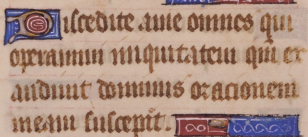 Discedite a me omnes qui
operamini iniquitatem qui ex
audiuit dominus orationem
meam suscepit.